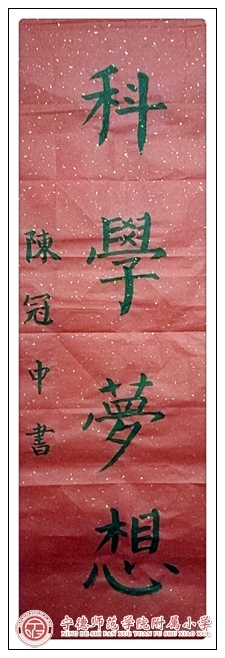 科學夢想
陳冠中書
宁德师范学院附属小学
NING DE SHI FAN XUE YUAN FU SHU XIAO XUE